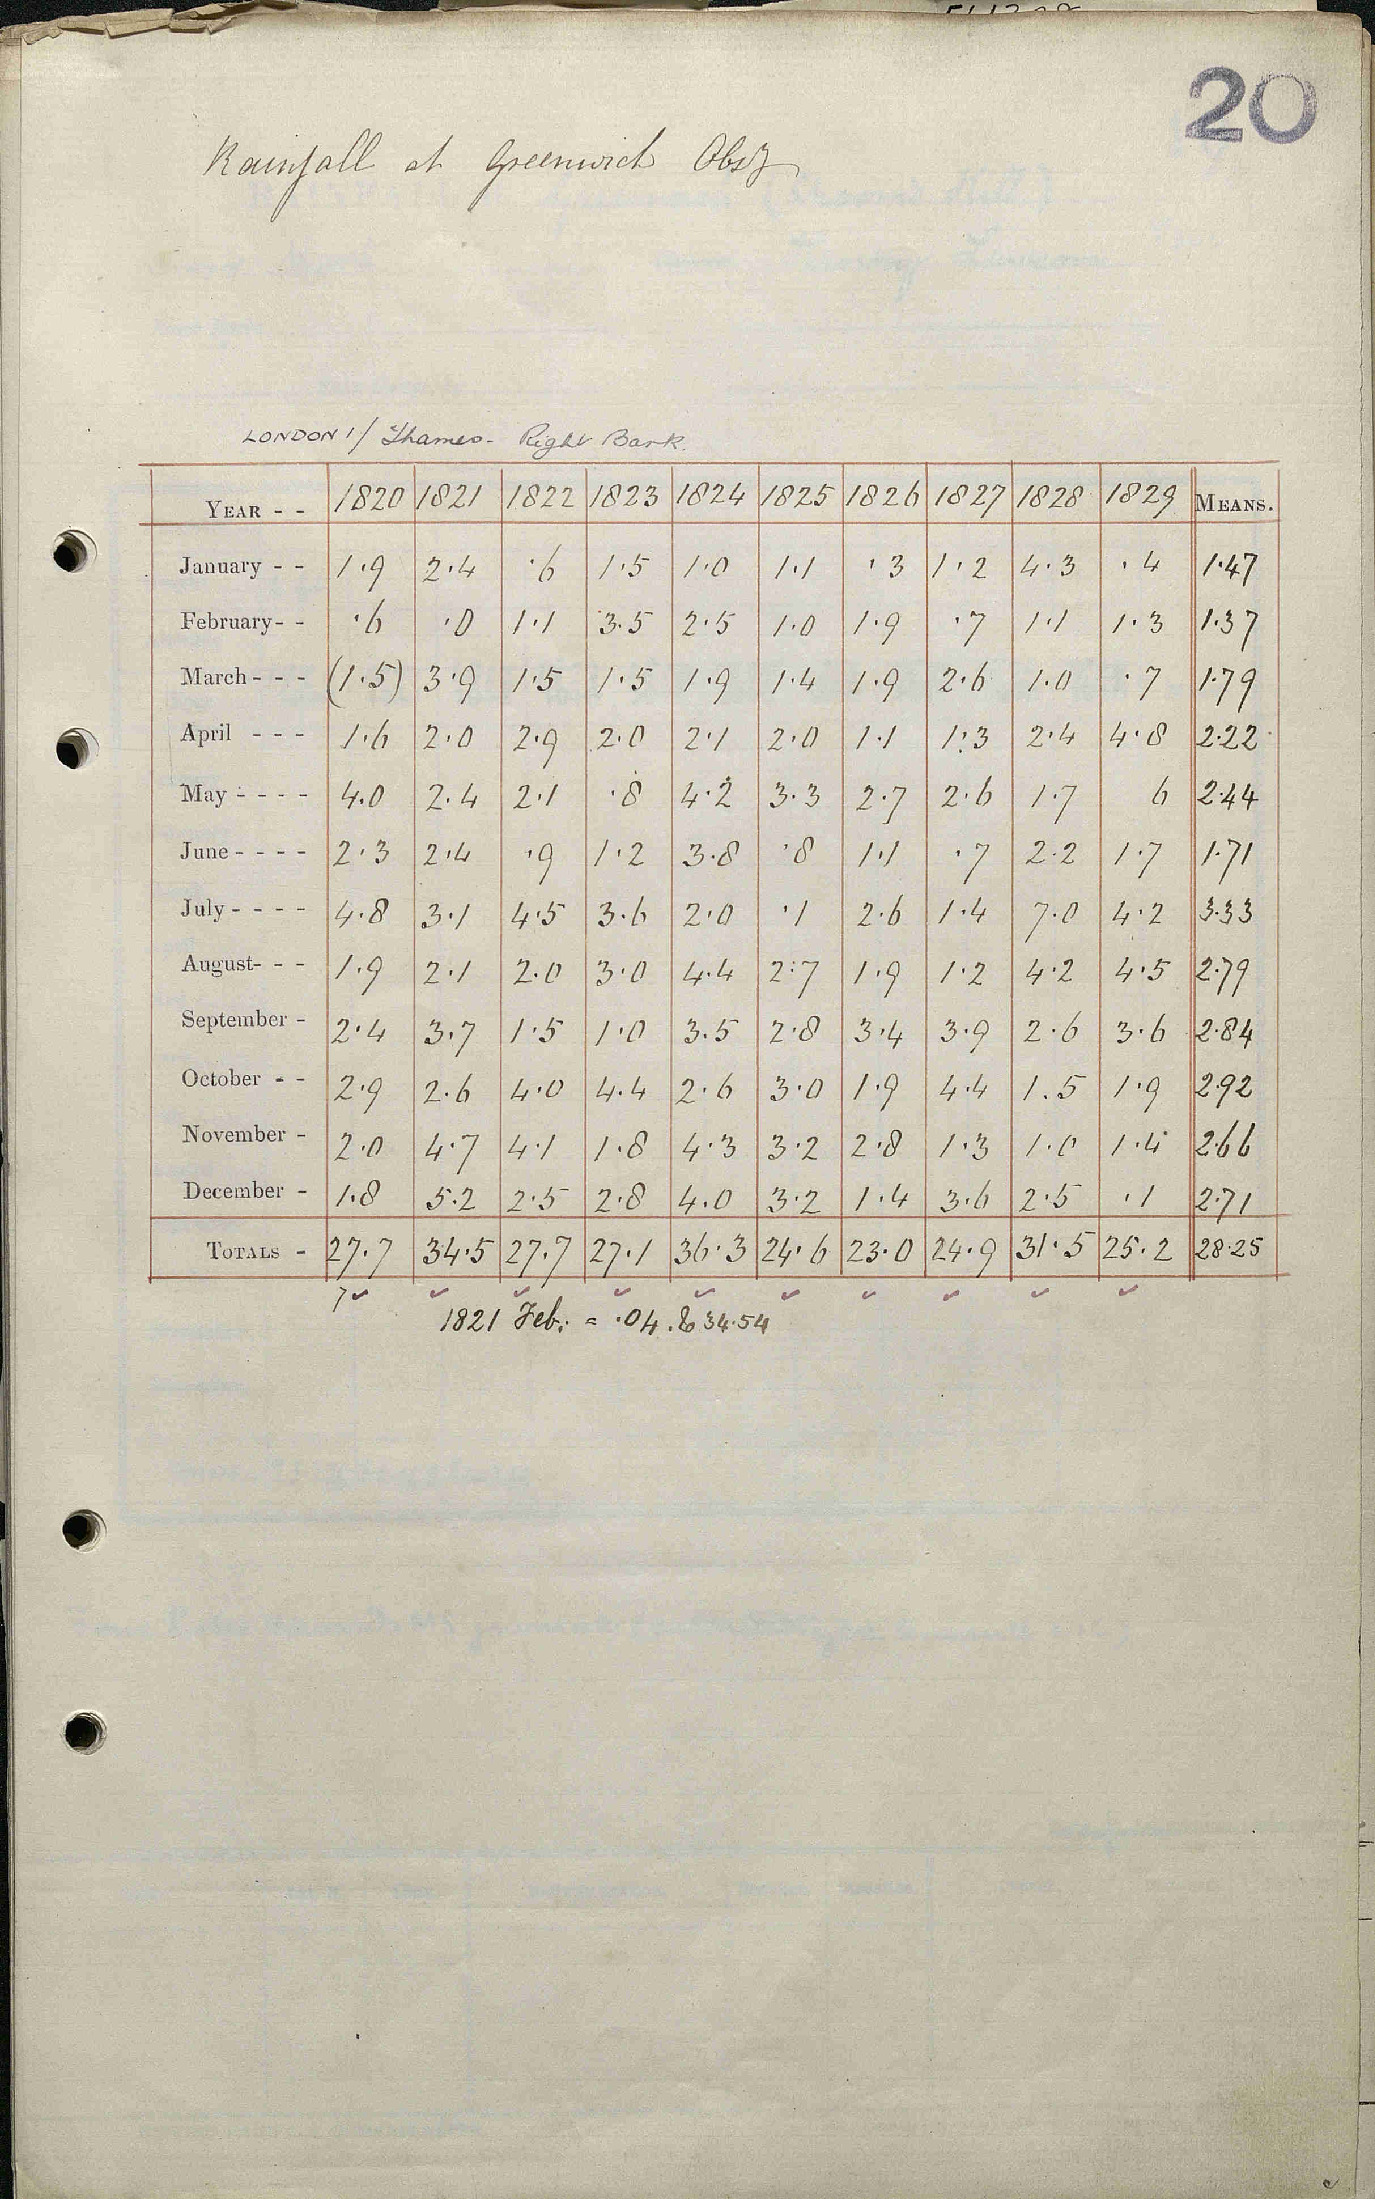 20
Rainfall at Greenwich Obsy
LONDON 1/ Thames - Right Bank.
YEAR - - 1820 1821 1822 1823 1824 1825 1826 1827 1828 1829 MEANS.
January - - 1.9 2.4 .6 1.5 1.0 1.1 .3 1.2 4.3 .4 1.47
February - - .6 .0 1.1 3.5 2.5 1.0 1.9 .7 1.1 1.3 1.37
March - - - (1.5) 3.9 1.5 1.5 1.9 1.4 1.9 2.6 1.0 .7 1.79
April - - - 1.6 2.0 2.9 2.0 2.1 2.0 1.1 1.3 2.4 4.8 2.22
May - - - - 4.0 2.4 2.1 .8 4.2 3.3 2.7 2.6 1.7 6 2.44
June - - - - 2.3 2.4 .9 1.2 3.8 .8 1.1 .7 2.2 1.7 1.71
July - - - - 4.8 3.1 4.5 3.6 2.0 .1 2.6 1.4 7.0 4.2 3.33
August - - - 1.9 2.1 2.0 3.0 4.4 2.7 1.9 1.2 4.2 4.5 2.79
September - 2.4 3.7 1.5 1.0 3.5 2.8 3.4 3.9 2.6 3.6 2.84
October - - 2.9 2.6 4.0 4.4 2.6 3.0 1.9 4.4 1.5 1.9 2.92
November - 2.0 4.7 4.1 1.8 4.3 3.2 2.8 1.3 1.0 1.4 2.66
December - 1.8 5.2 2.5 2.8 4.0 3.2 1.4 3.6 2.5 .1 2.71
TOTALS - 27.7 34.5 27.7 27.1 36.3 24.6 23.0 24.9 31.5 25.2 28.25
7
1821 Feb. = .04 . & 34.54